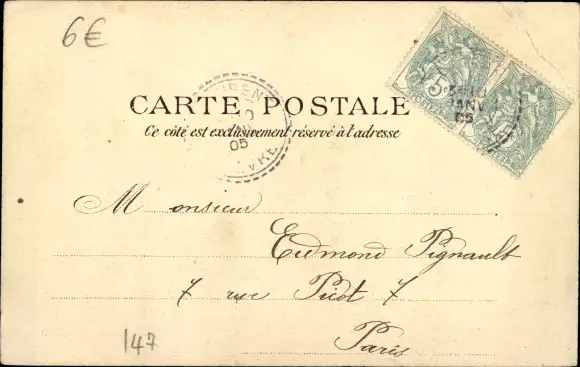 6€
CARTE POSTALE
Ce côté est exclusivement réservé à l'adresse
5
JANV
05
05
Monsieur
Edmond Pignault
7 rue Picot 7
Paris
147